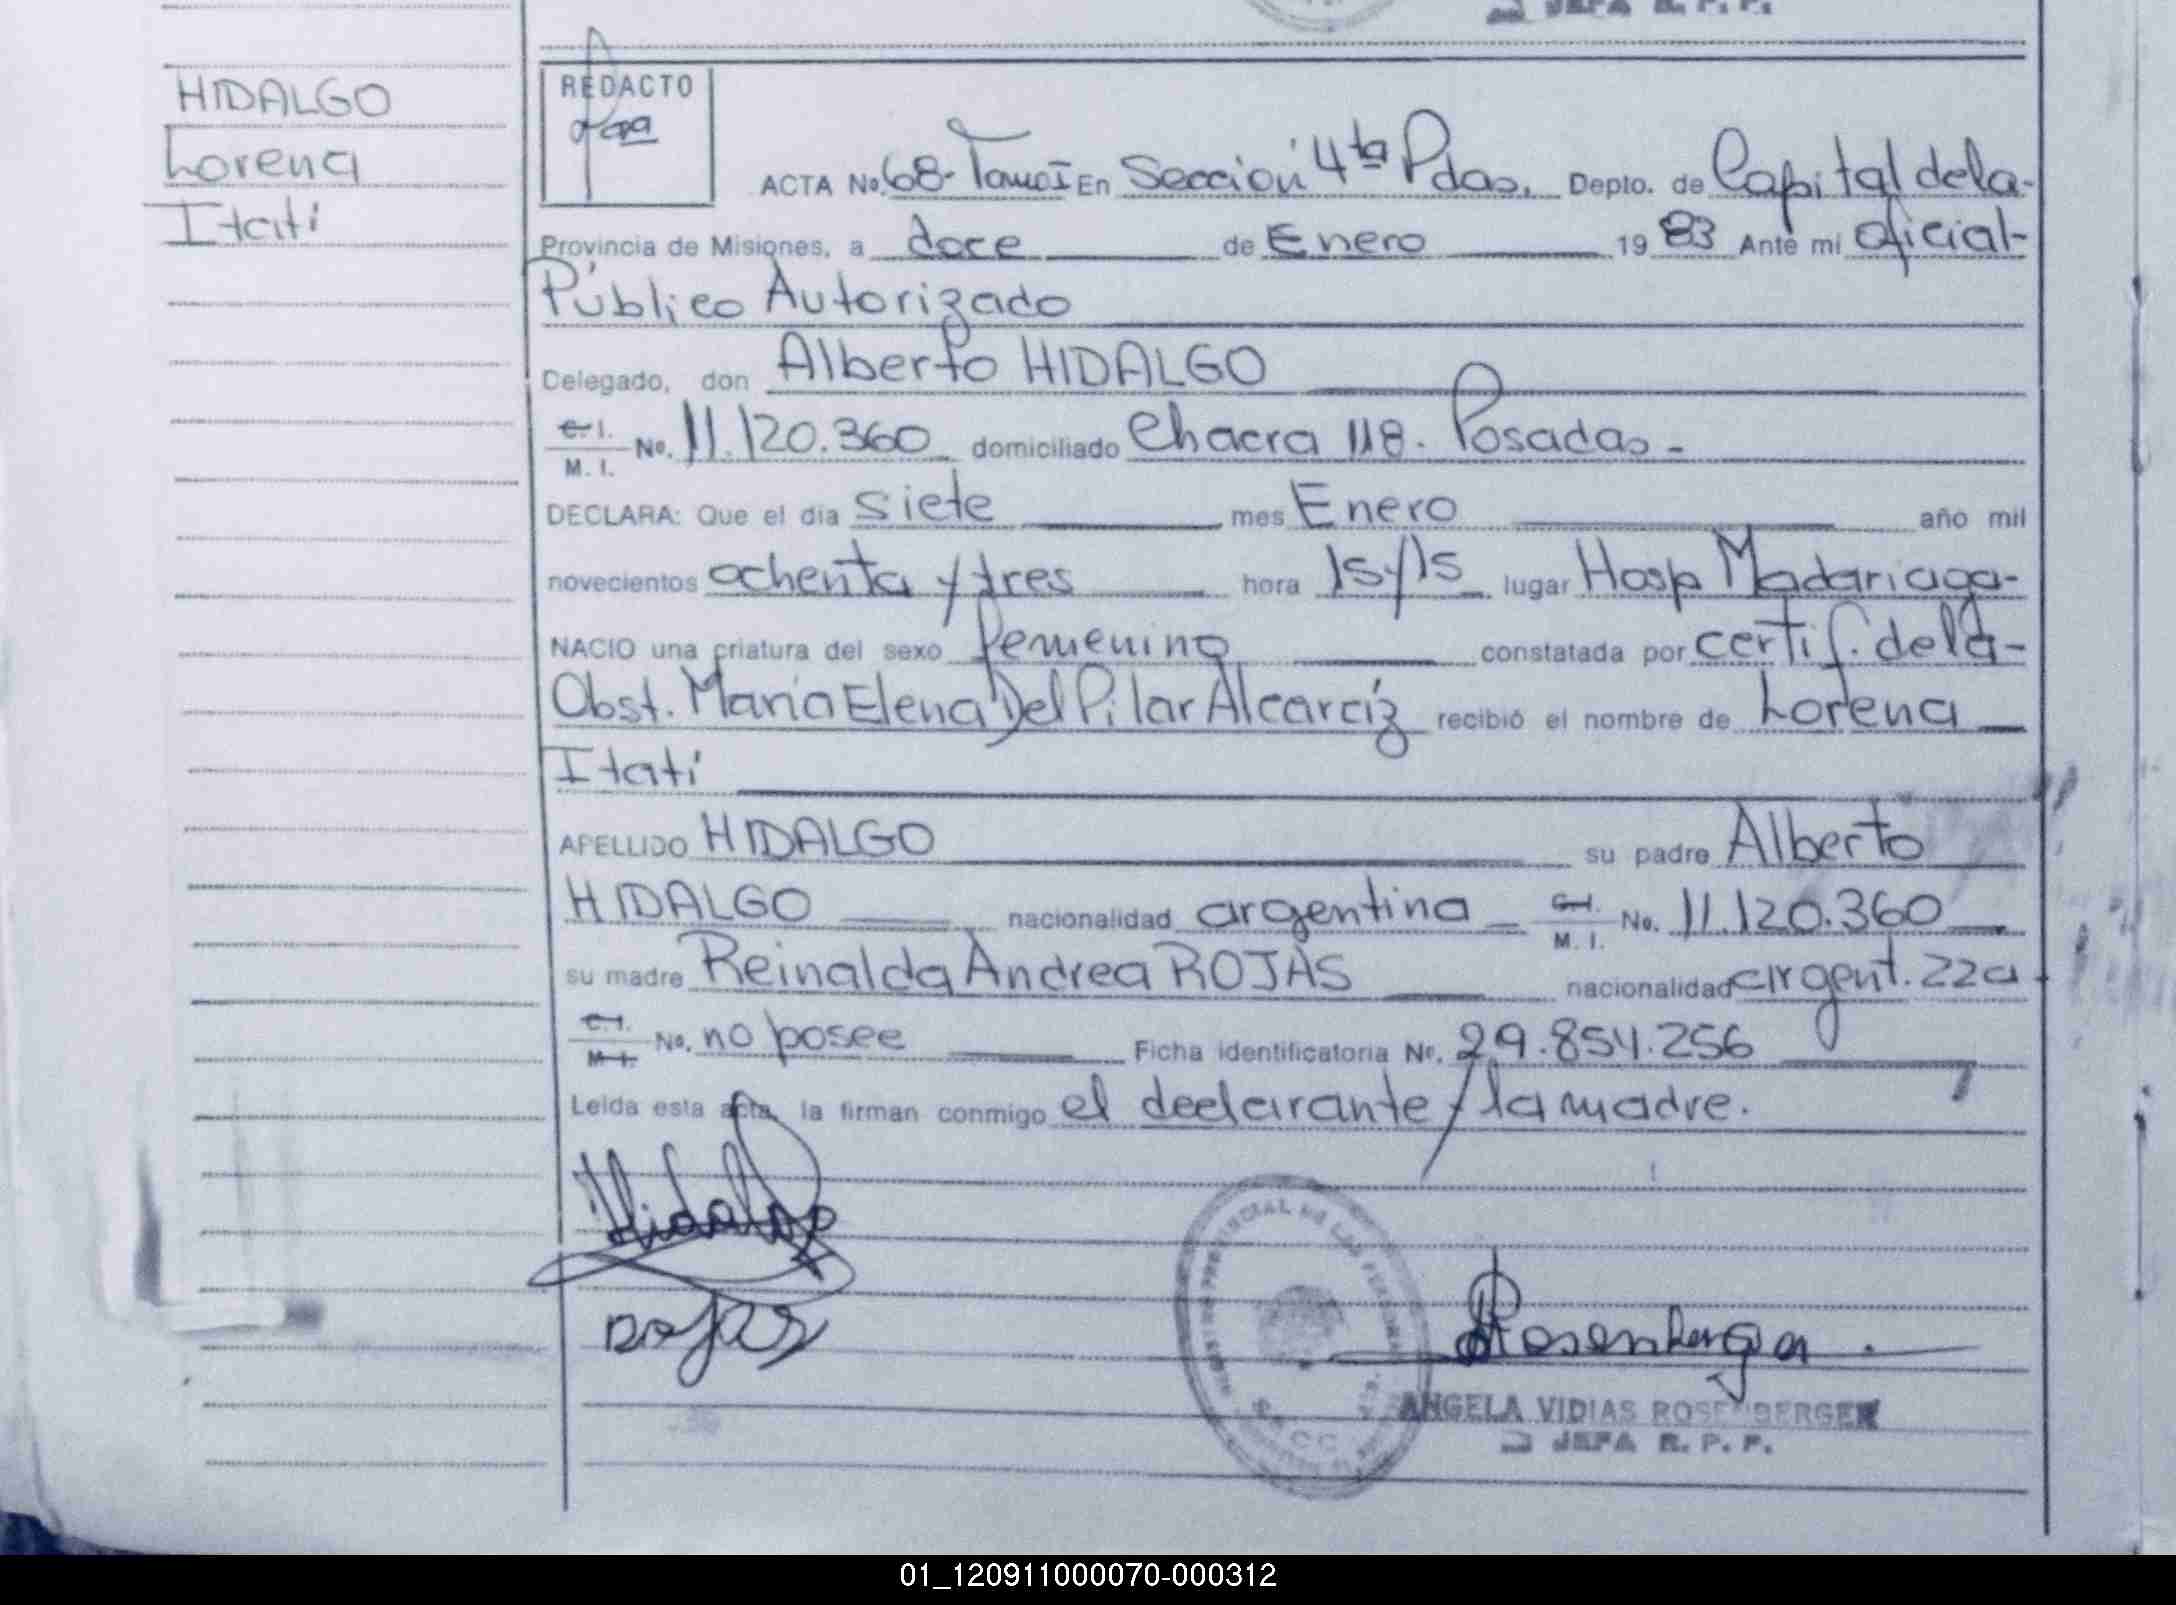 JEFA R. P. P.
HIDALGO
Lorena
Itatí
REDACTO
ACTA No. 68- Tomo I En Sección 4ta Pdas. Depto. de Capital de la-
Provincia de Misiones, a doce de Enero 19 83 Ante mi oficial-
Público Autorizado
Delegado, don Alberto HIDALGO
C. I.
M. I. No. 11.120.360 domiciliado Chacra 118. Posadas-
DECLARA: Que el dia siete mes Enero año mil
novecientos ochenta y tres hora 15 y 15 lugar Hosp Madariaga-
NACIO una criatura del sexo femenino constatada por certif. de la-
Obst. María Elena Del Pilar Alcaráz recibió el nombre de Lorena
Itatí
APELLIDO HIDALGO su padre Alberto
HIDALGO nacionalidad argentina C. I.
M. I. No. 11.120.360
su madre Reinalda Andrea ROJAS nacionalidad argent. 22a
C. I.
M. I. No. no posee Ficha identificatoria Nº. 29.854.256
Leida esta acta, la firman conmigo el declarante y la madre.
Hidalgo
Rojas
Rosenberger
PROVINCIAL DE LAS PERSONAS
ANGELA VIDIAS ROSENBERGER
JEFA R. P. P.
01_120911000070-000312